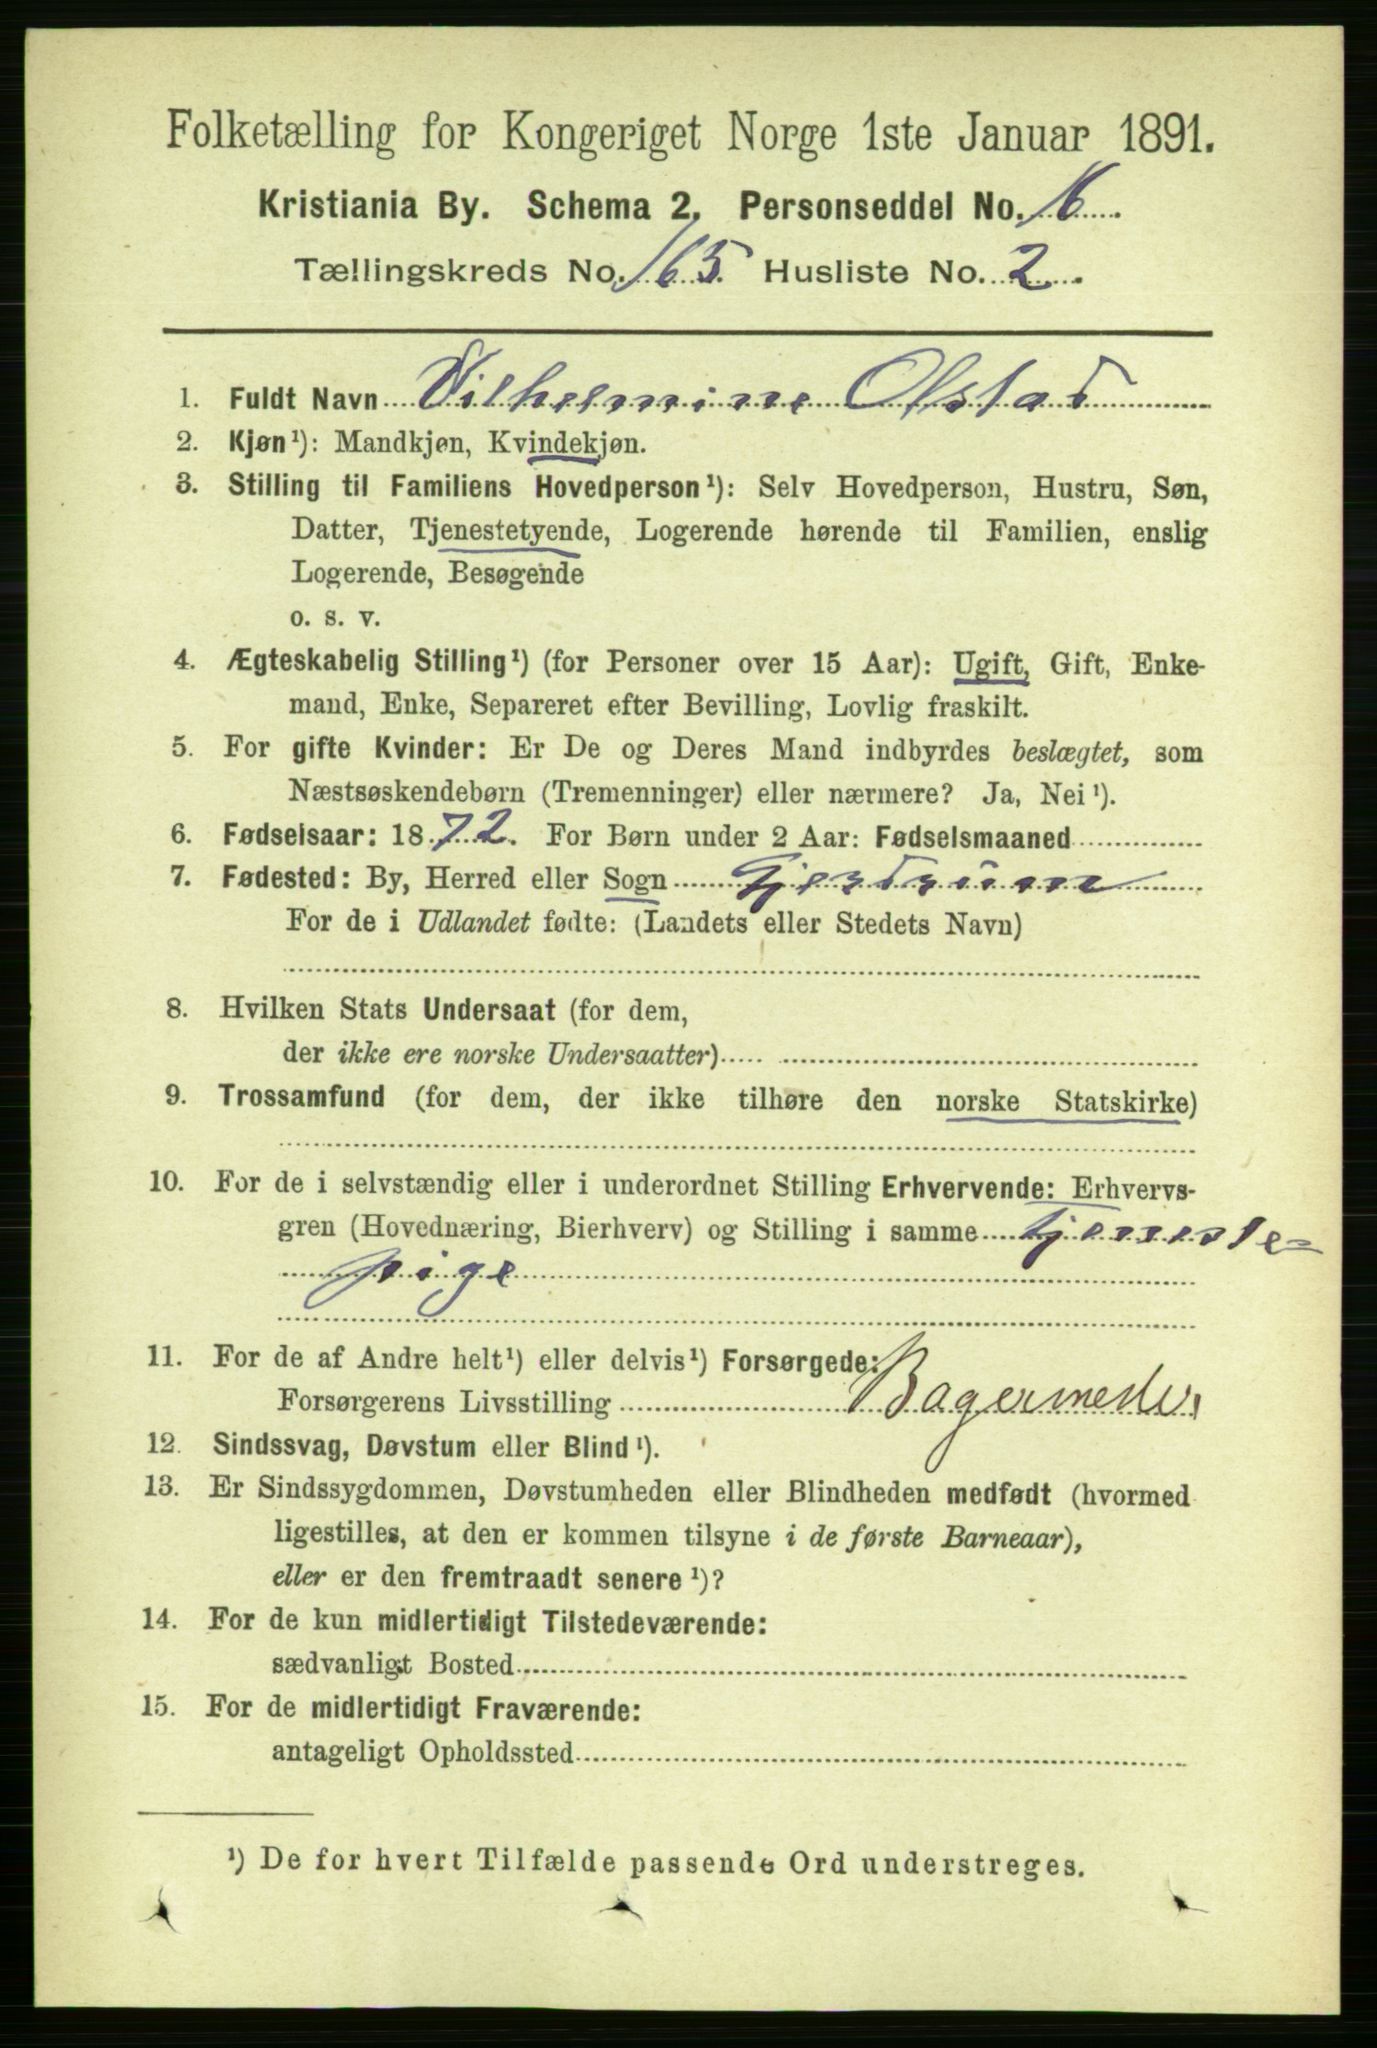 Folketælling for Kongeriget Norge 1ste Januar 1891.
Kristiania By. Schema 2. Personseddel No. 16.
Tællingskreds No. 165. Husliste No. 2.
1. Fuldt Navn Vilhelmine Olstad
2. Kjøn¹): Mandkjøn, Kvindekjøn.
3. Stilling til Familiens Hovedperson¹): Selv Hovedperson, Hustru, Søn,
Datter, Tjenestetyende, Logerende hørende til Familien, enslig
Logerende, Besøgende
o. s. v.
4. Ægteskabelig Stilling¹) (for Personer over 15 Aar): Ugift, Gift, Enke-
mand, Enke, Separeret efter Bevilling, Lovlig fraskilt.
5. For gifte Kvinder: Er De og Deres Mand indbyrdes beslægtet, som
Næstsøskendebørn (Tremenninger) eller nærmere? Ja, Nei¹).
6. Fødselsaar: 1872. For Børn under 2 Aar: Fødselsmaaned
7. Fødested: By, Herred eller Sogn Gjerdrum
For de i Udlandet fødte: (Landets eller Stedets Navn)
8. Hvilken Stats Undersaat (for dem,
der ikke ere norske Undersaatter)
9. Trossamfund (for dem, der ikke tilhøre den norske Statskirke)
10. For de i selvstændig eller i underordnet Stilling Erhvervende: Erhvervs-
gren (Hovednæring, Bierhverv) og Stilling i samme tjeneste=
pige
11. For de af Andre helt¹) eller delvis¹) Forsørgede:
Forsørgerens Livsstilling Bagermester
12. Sindssvag, Døvstum eller Blind¹).
13. Er Sindssygdommen, Døvstumheden eller Blindheden medfødt (hvormed
ligestilles, at den er kommen tilsyne i de første Barneaar),
eller er den fremtraadt senere¹)?
14. For de kun midlertidigt Tilstedeværende:
sædvanligt Bosted
15. For de midlertidigt Fraværende:
antageligt Opholdssted
¹) De for hvert Tilfælde passende Ord understreges.